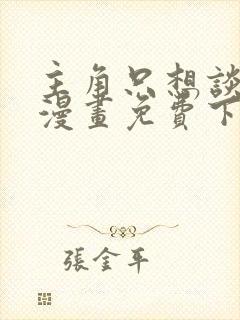 主角只想談
漫畫免費下
張金平